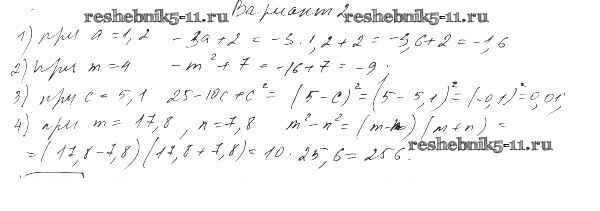 reshebnik5-11.ru
Вариант 2
1) при a = 1,2 -3a+2 = -3·1,2+2 = -3,6+2 = -1,6
2) при m = 4 -m²+7 = -16+7 = -9.
3) при c = 5,1 25-10c+c² = (5-c)² = (5-5,1)² = (-0,1)² = 0,01,
4) при m = 17,8, n = 7,8 m²-n² = (m-n)(m+n) =
= (17,8-7,8)(17,8+7,8) = 10·25,6 = 256.
reshebnik5-11.ru